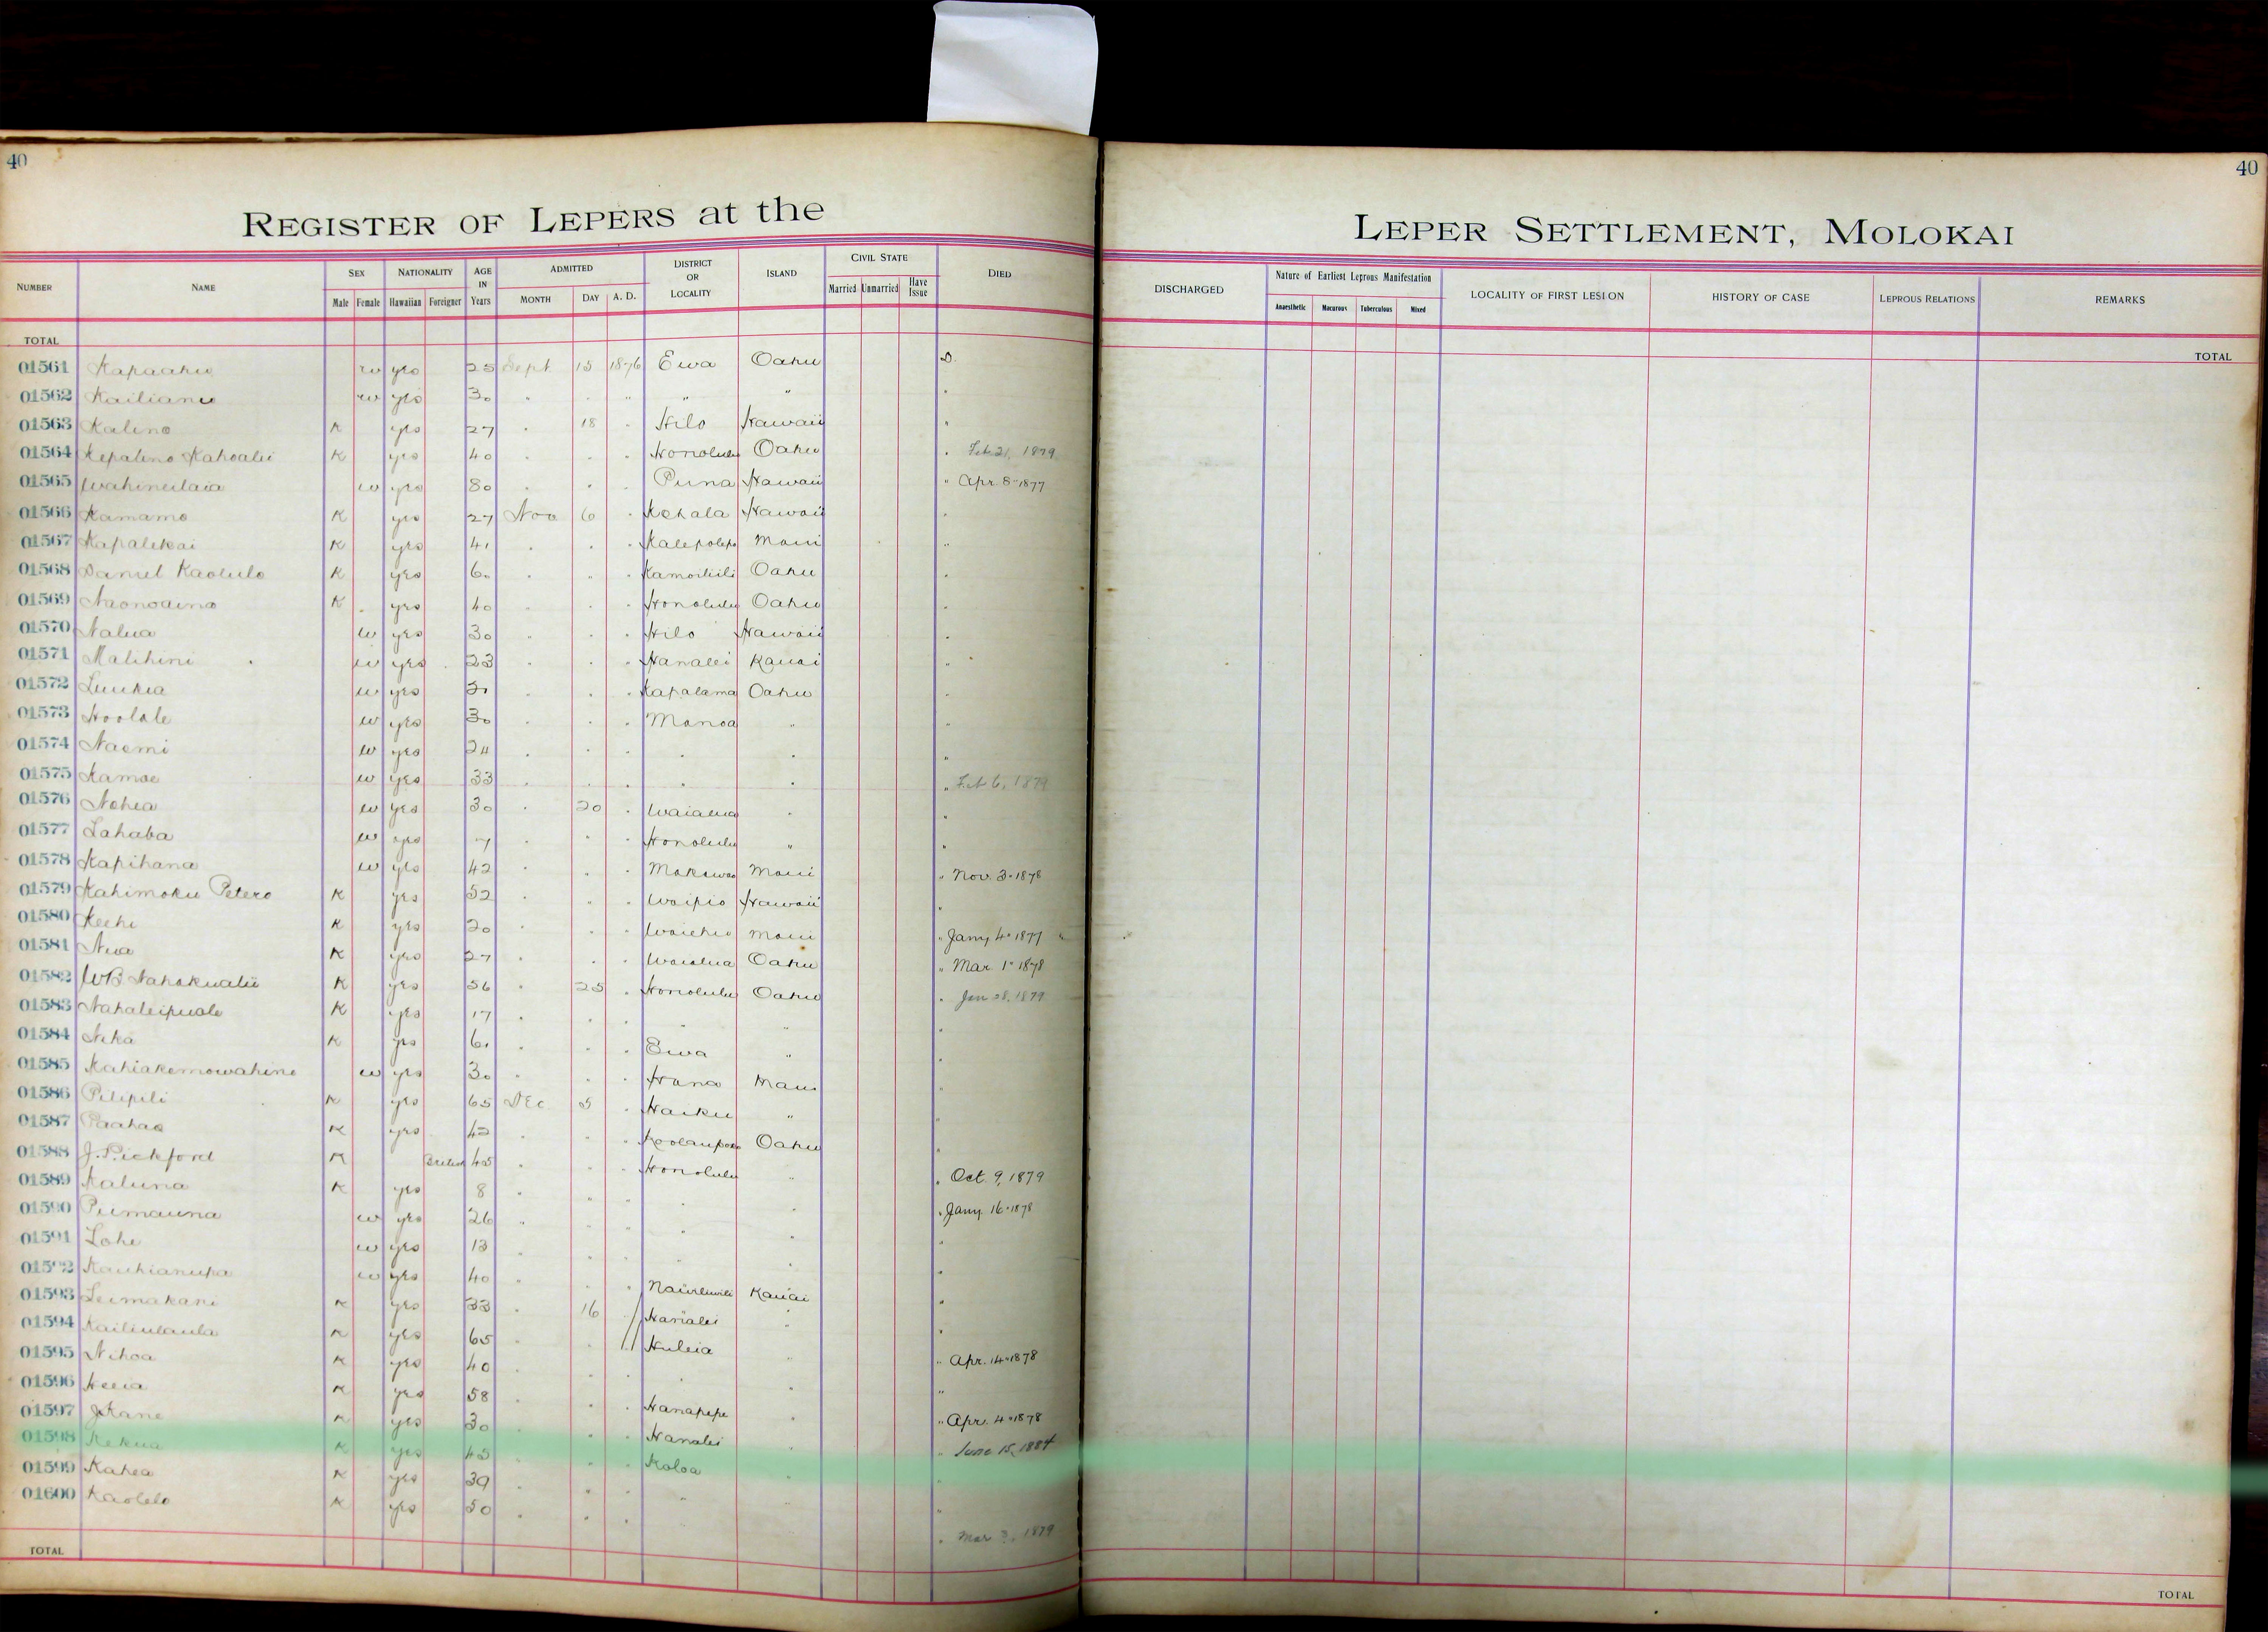 40
REGISTER OF LEPERS at the
NUMBER NAME SEX Male Female NATIONALITY Hawaiian Foreigner AGE IN Years ADMITTED MONTH DAY A. D. DISTRICT OR LOCALITY ISLAND CIVIL STATE Married Unmarried Have Issue DIED
TOTAL
01561 Kapaahu w yes 25 Sept 15 1876 Ewa Oahu D.
01562 Kailianu w yes 30 " " " " " "
01563 Kalino K yes 27 " 18 " Hilo Hawaii "
01564 Kepalino Kahoalii K yes 40 " " " Honolulu Oahu " Feb 21, 1879
01565 Wahineilaia w yes 80 " " " Puna Hawaii " Apr. 8" 1877
01566 Kamamo K yes 27 Nov 6 " Kohala Hawaii "
01567 Kapalikai K yes 41 " " " Kalepolepo Maui "
01568 Daniel Kaolulo K yes 60 " " " Kamoiliili Oahu "
01569 Naonoaina K yes 40 " " " Honolulu Oahu "
01570 Nalua w yes 30 " " " Hilo Hawaii "
01571 Malihini w yes 23 " " " Hanalei Kauai "
01572 Luukia w yes 21 " " " Kapalama Oahu "
01573 Hoolale w yes 30 " " " Manoa " "
01574 Naomi w yes 24 " " " " " "
01575 Kamae w yes 33 " " " " " " Feb 6, 1879
01576 Nohea w yes 30 " 20 " Waialua " "
01577 Lahaba w yes 7 " " " Honolulu " "
01578 Kapihana w yes 42 " " " Makawao Maui " Nov. 3" 1878
01579 Kahimoku Petero K yes 52 " " " Waipio Hawaii "
01580 Keehi K yes 20 " " " Waiehu Maui " Jany 4" 1877 "
01581 Nua K yes 27 " " " Waialua Oahu " Mar. 1" 1878
01582 WB Nahokualii K yes 56 " 25 " Honolulu Oahu " Jan 28, 1879
01583 Nahaleipuole K yes 17 " " " " " "
01584 Nika K yes 61 " " " Ewa " "
01585 Kahiakemowahine w yes 30 " " " Hana Maui "
01586 Pilipili K yes 65 Dec 5 " Haiku " "
01587 Paahao K yes 42 " " " Koolaupoko Oahu "
01588 J. Pickford K British 45 " " " Honolulu " " Oct. 9, 1879
01589 Kaluna K yes 8 " " " " " " Jany 16" 1878
01590 Puimauna w yes 26 " " " " " "
01591 Lohe w yes 13 " " " " " "
01592 Kauhianupa w yes 40 " " " Nawiliwili Kauai "
01593 Leimakani K yes 33 " 16 " Hanalei " "
01594 Kailiulaula K yes 65 " " " Huleia " " Apr. 14" 1878
01595 Nihoa K yes 40 " " " " " "
01596 Heeia K yes 58 " " " Hanapepe " " Apr. 4" 1878
01597 J Kane K yes 30 " " " Hanalei " " June 15, 1884
01598 Kekua K yes 45 " " " Koloa " "
01599 Kahea K yes 39 " " " " " "
01600 Kaolelo K yes 50 " " " " Mar 3, 1879
TOTAL
40
LEPER SETTLEMENT, MOLOKAI
DISCHARGED Nature of Earliest Leprous Manifestation Anaesthetic Macurous Tuberculous Mixed LOCALITY OF FIRST LESION HISTORY OF CASE LEPROUS RELATIONS REMARKS
TOTAL
TOTAL